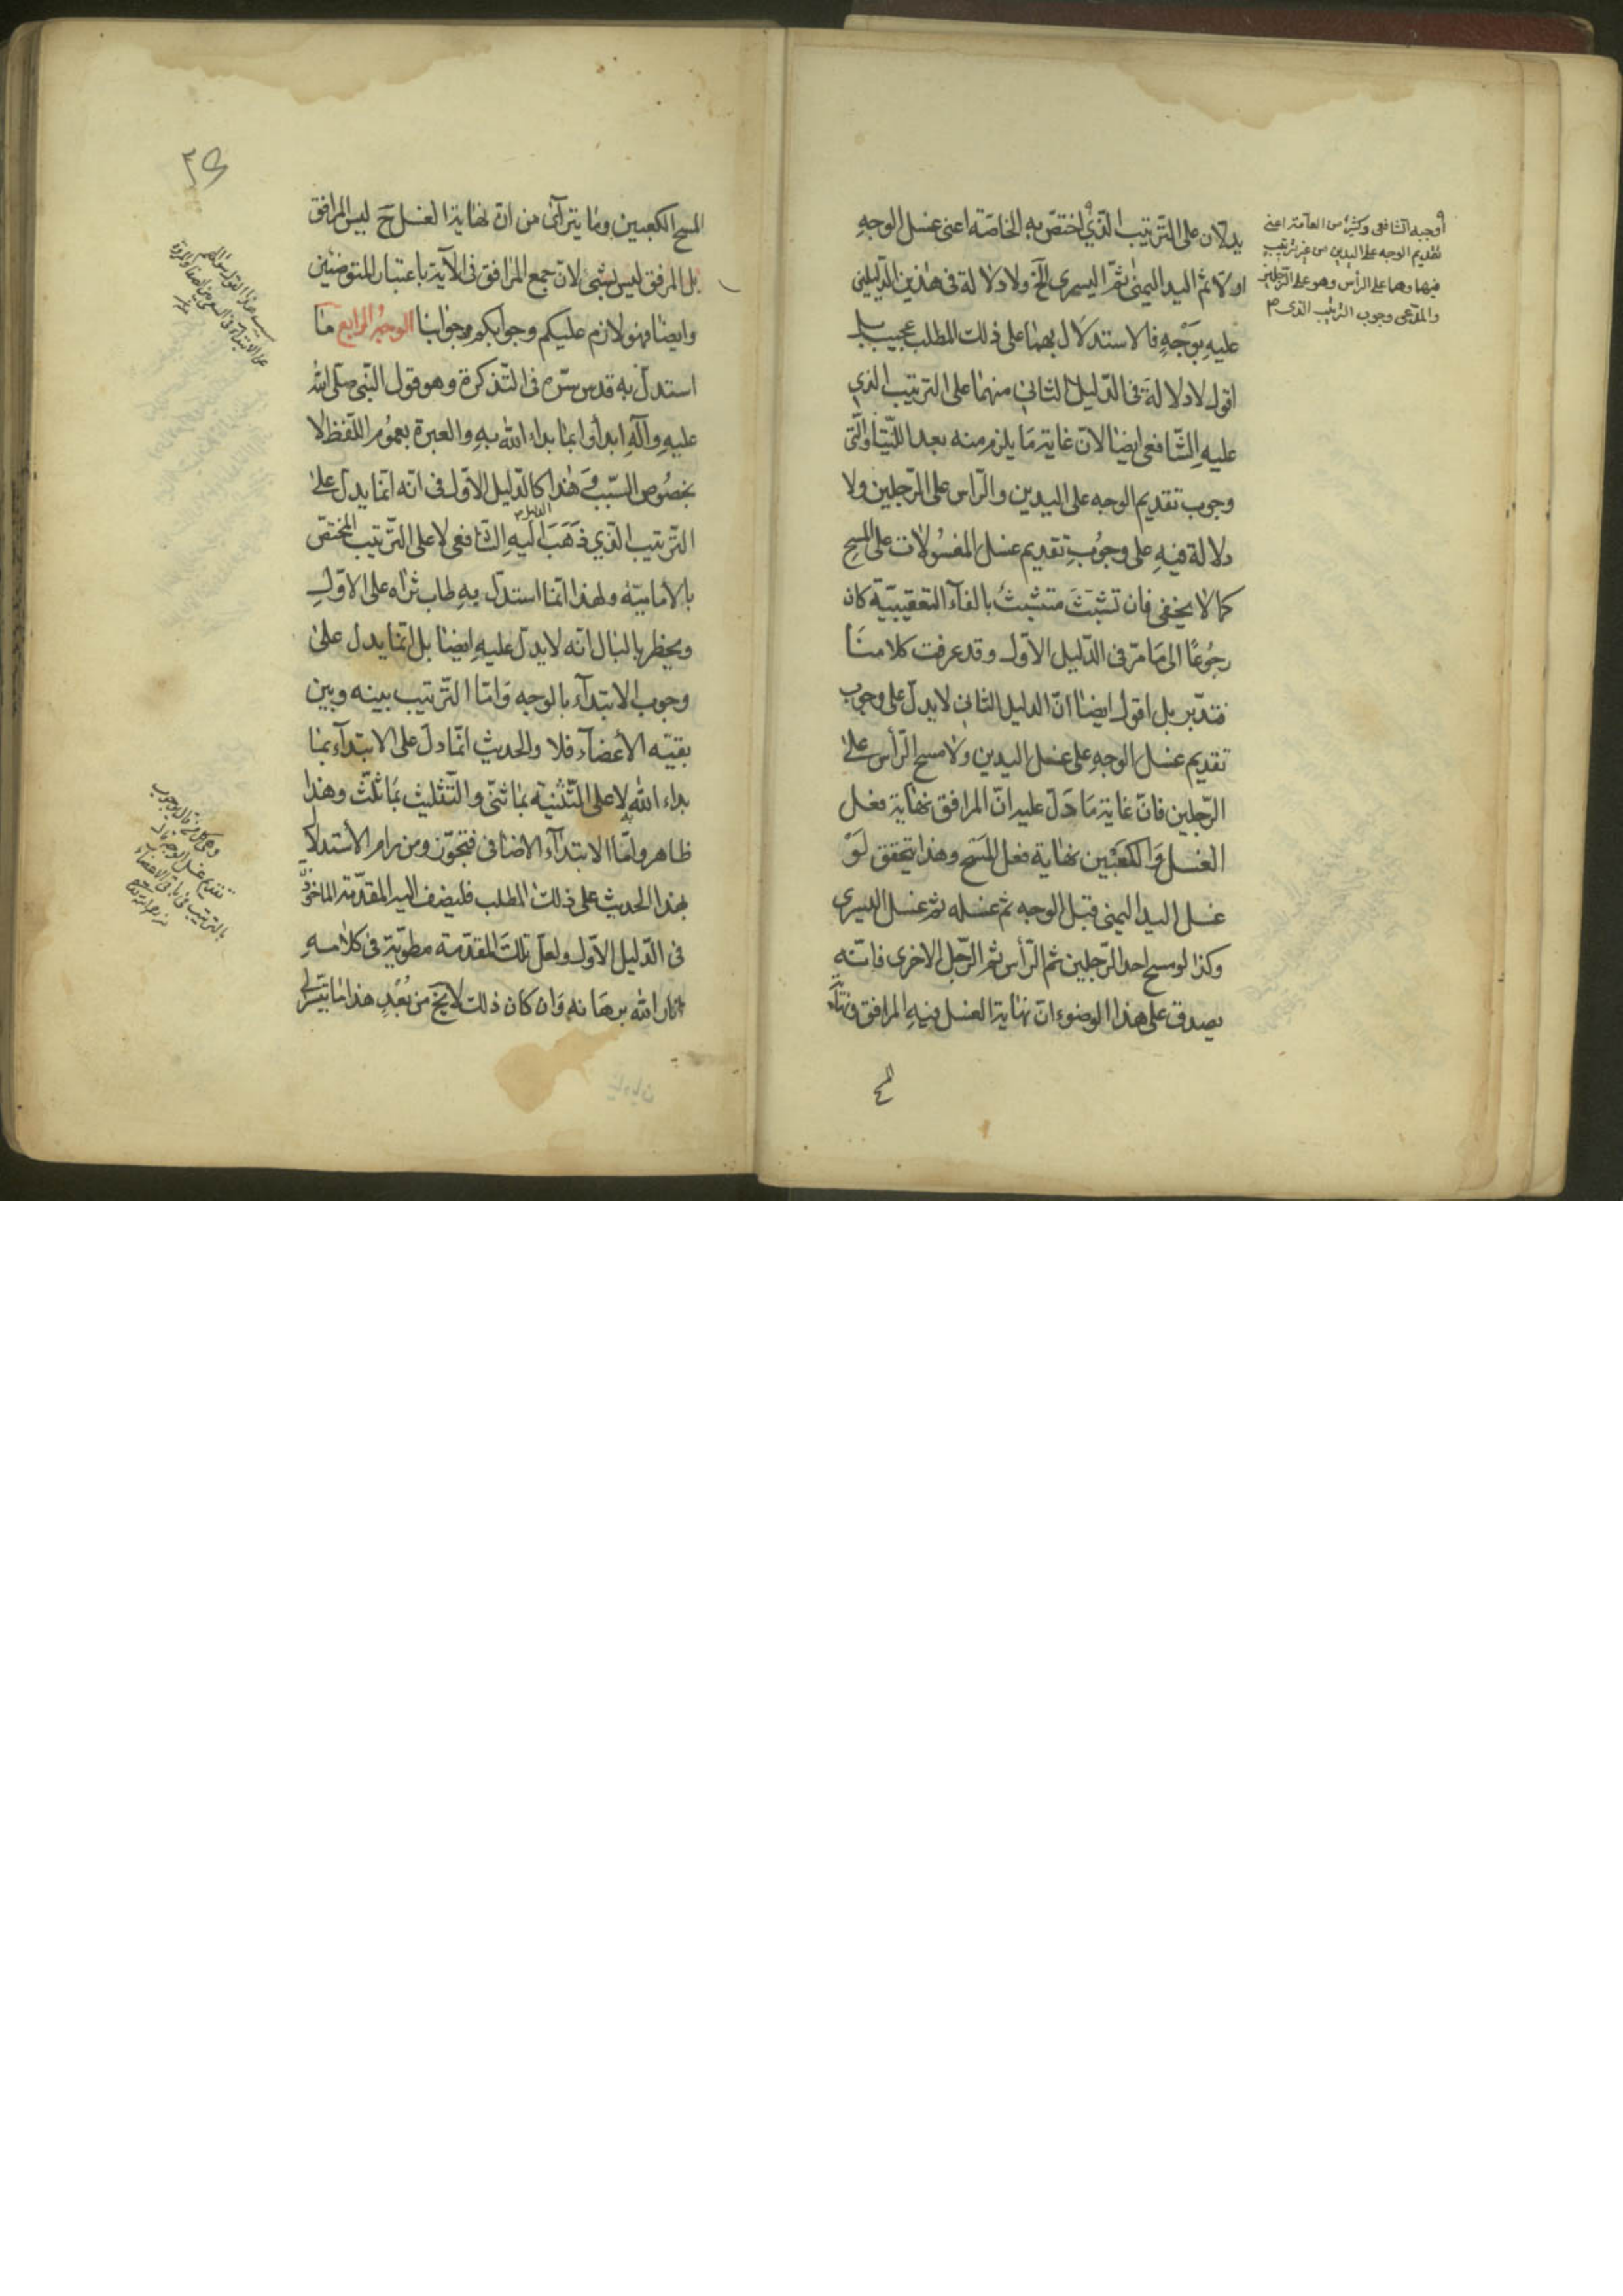 يدلان على الترتيب الذي اختص به الخاصة اعنى غسل الوجه
اولا ثم اليد اليمنى ثم اليسرى الخ ولا دلالة فى هذين الدليلين
عليه بوجه فالاستدلال بهما على ذلك المطلب عجيب بل
اقول لا دلالة فى الدليل الثانى منهما على الترتيب الذى
عليه الشافعى ايضا لان غاية ما يلزم منه بعد اللتيا والتى
وجوب تقديم الوجه على اليدين والراس على الرجلين ولا
دلالة فيه على وجوب تقديم غسل المغسولات على المسح
كما لا يخفى فان تشبث متشبث بالفاء التعقيبية كان
رجوعا الى ما مر فى الدليل الاول وقد عرفت كلامنا
فتدبر بل اقول ايضا ان الدليل الثانى لا يدل على وجوب
تقديم غسل الوجه على غسل اليدين ولا مسح الرأس على
الرجلين فان غاية ما دل عليه ان المرافق نهاية فعل
الغسل والكعبين نهاية فعل المسح وهذا يتحقق لو
غسل اليد اليمنى قبل الوجه ثم غسله ثم غسل اليسرى
وكذا لو مسح احد الرجلين ثم الرأس ثم الرجل الاخرى فانه
يصدق على هذا الوضوء ان نهاية الغسل فيه المرافق ونهاية
اوجبه الشافعى وكثير من العامة اعنى
تقديم الوجه على اليدين من غير ترتيب
فيهما وهما على الرأس وهو على الرجلين
والمدعى وجوب الترتيب الذى م
المسح الكعبين وما يتراآى من ان نهاية الغسل ح ليس المرافق
بل المرفق ليس بشئ لان جمع المرافق فى الآية باعتبار المتوضئين
وايضا فهو لازم عليكم وجوابكم جوابنا الوجه الرابع ما
استدل به قدس سره فى التذكرة وهو قول النبى صلى الله
عليه وآله ابدأوا بما بداء الله به والعبرة بعموم اللفظ لا
بخصوص السبب وهذا كالدليل الاول فى انه انما يدل على
الترتيب الذي ذهب اليه الشافعى لا على الترتيب المختص
بالامامية ولهذا انما استدل به طاب ثراه على الاول
ويخطر بالبال انه لا يدل عليه ايضا بل انما يدل على
وجوب الابتداء بالوجه واما الترتيب بينه وبين
بقية الأعضاء فلا والحديث انما دل على الابتداء بما
بداء الله به لا على التثنية بما ثنى والتثليث بما ثلث وهذا
ظاهر واما الابتداء الاضافى فتجوز ومن رام الاستدلال
بهذا الحديث على ذلك المطلب فليضف اليه المقدمة الماخوذة
فى الدليل الاول ولعل تلك المقدمة مطوية فى كلامه
انار الله برهانه وان كان ذلك لا يخ من بعد هذا ما تيسر لى
وهى كل من قال بوجوب
تقديم غسل الوجه قال
بالترتيب فى باقى الاعضاء